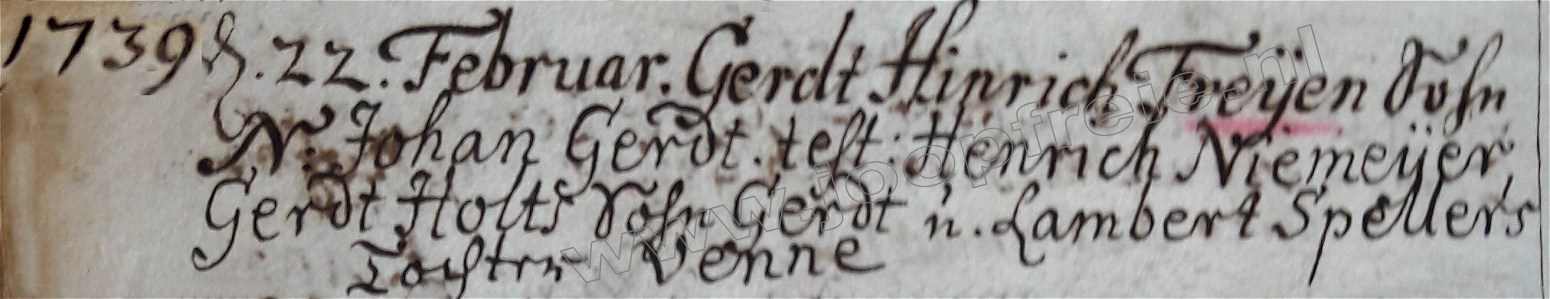 1739 d. 22. Februar. Gerdt Hinrich Freÿen Sohn
N: Johan Gerdt. test: Henrich Niemeÿer,
Gerdt Holts Sohn Gerdt u. Lambert Spellers
Tochter Venne
www.joopfreje.nl